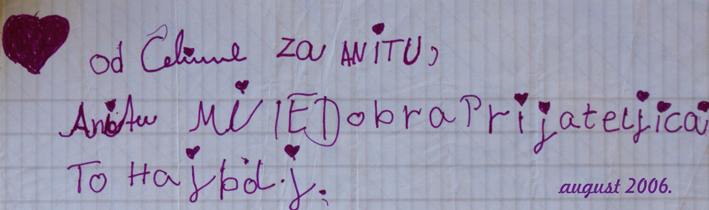 od Čeline za ANiTU,
Anitu Mi JE Dobra Prijateljica
To Hajbolj.
august 2006.